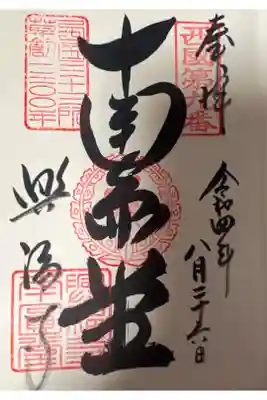 奉拝
西國第九番
令和四年
八月二十六日
南円堂
西国三十三所
草創一三〇〇年
興福寺